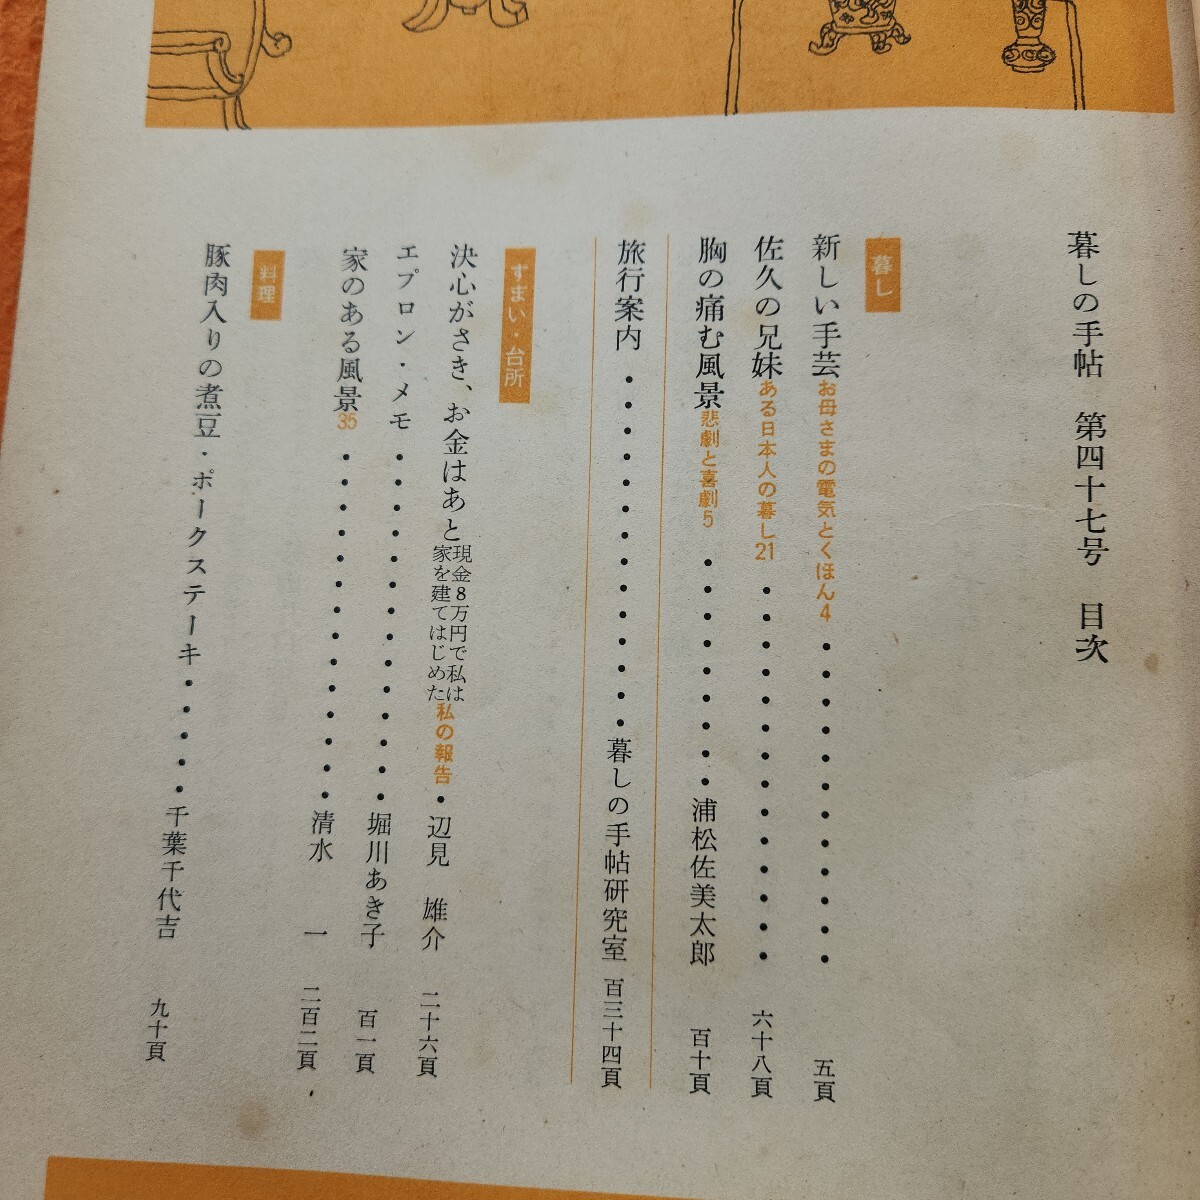 暮しの手帖 第四十七号 目次
暮し
新しい手芸 お母さまの電気とくほん4 ・・・・・・・・・・・・ 五頁
佐久の兄妹 ある日本人の暮し21 ・・・・・・・・・・・・・・ 六十八頁
胸の痛む風景 悲劇と喜劇5 ・・・・・・・・・ 浦松佐美太郎 百十頁
旅行案内 ・・・・・・・・・・・・・・ 暮しの手帖研究室 百三十四頁
すまい・台所
決心がさき、お金はあと 現金8万円で私は
家を建てはじめた 私の報告 ・ 辺見 雄介 二十六頁
エプロン・メモ ・・・・・・・・・・・・・・ 堀川あき子 百一頁
家のある風景35 ・・・・・・・・・・・・・・ 清水 一 二百二頁
料理
豚肉入りの煮豆・ポークステーキ ・・・・・ 千葉千代吉 九十頁